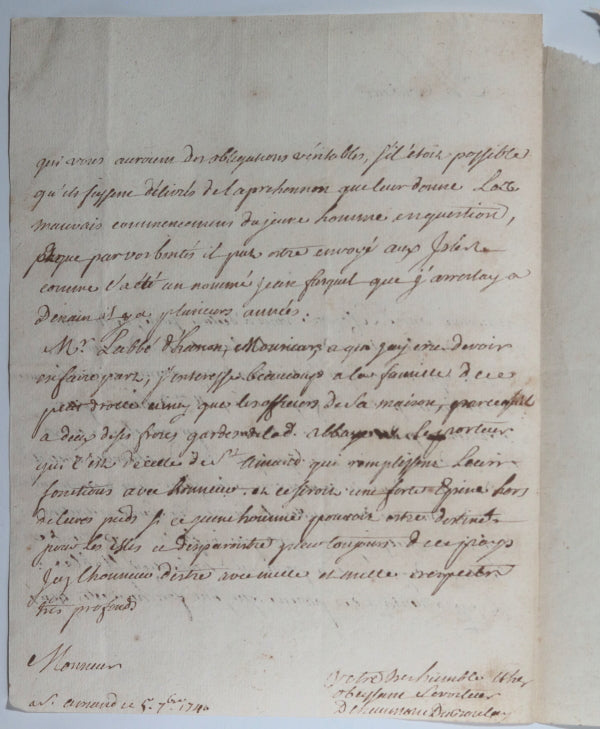 qui vous auroient des obligations véritables, s'il étoit possible
qu'ils fussent délivrés de l'aprehension que leur donne
mauvais commencemens du jeune homme en question,
que par vos bontés il put estre envoyé aux
comme l'a été un nommé jean que j'arrestay a
Denain il y a plusieurs années.
Mr. L'abbé d' Monsieur, a qui j'ay cru devoir
en faire part, s'interesse beaucoup a la famille de ce
que les officiers de sa maison, parce qu'il
a deux de ses freres gardes de lad. abbaye le porteur
qui l'est de celle de St. Amand qui remplissent Leurs
fonctions avec honneur. et ce seroit une forte Epine hors
de leurs pieds si ce jeune homme pouvoit estre destiné
pour les isles et disparoitre pour toujours de ce pays
J'ay l'honneur d'estre avec mille et mille respects
tres profond
Monsieur
Votre tres humble et tres
obeyssant serviteur
a St. amand ce 5. 7bre 1740